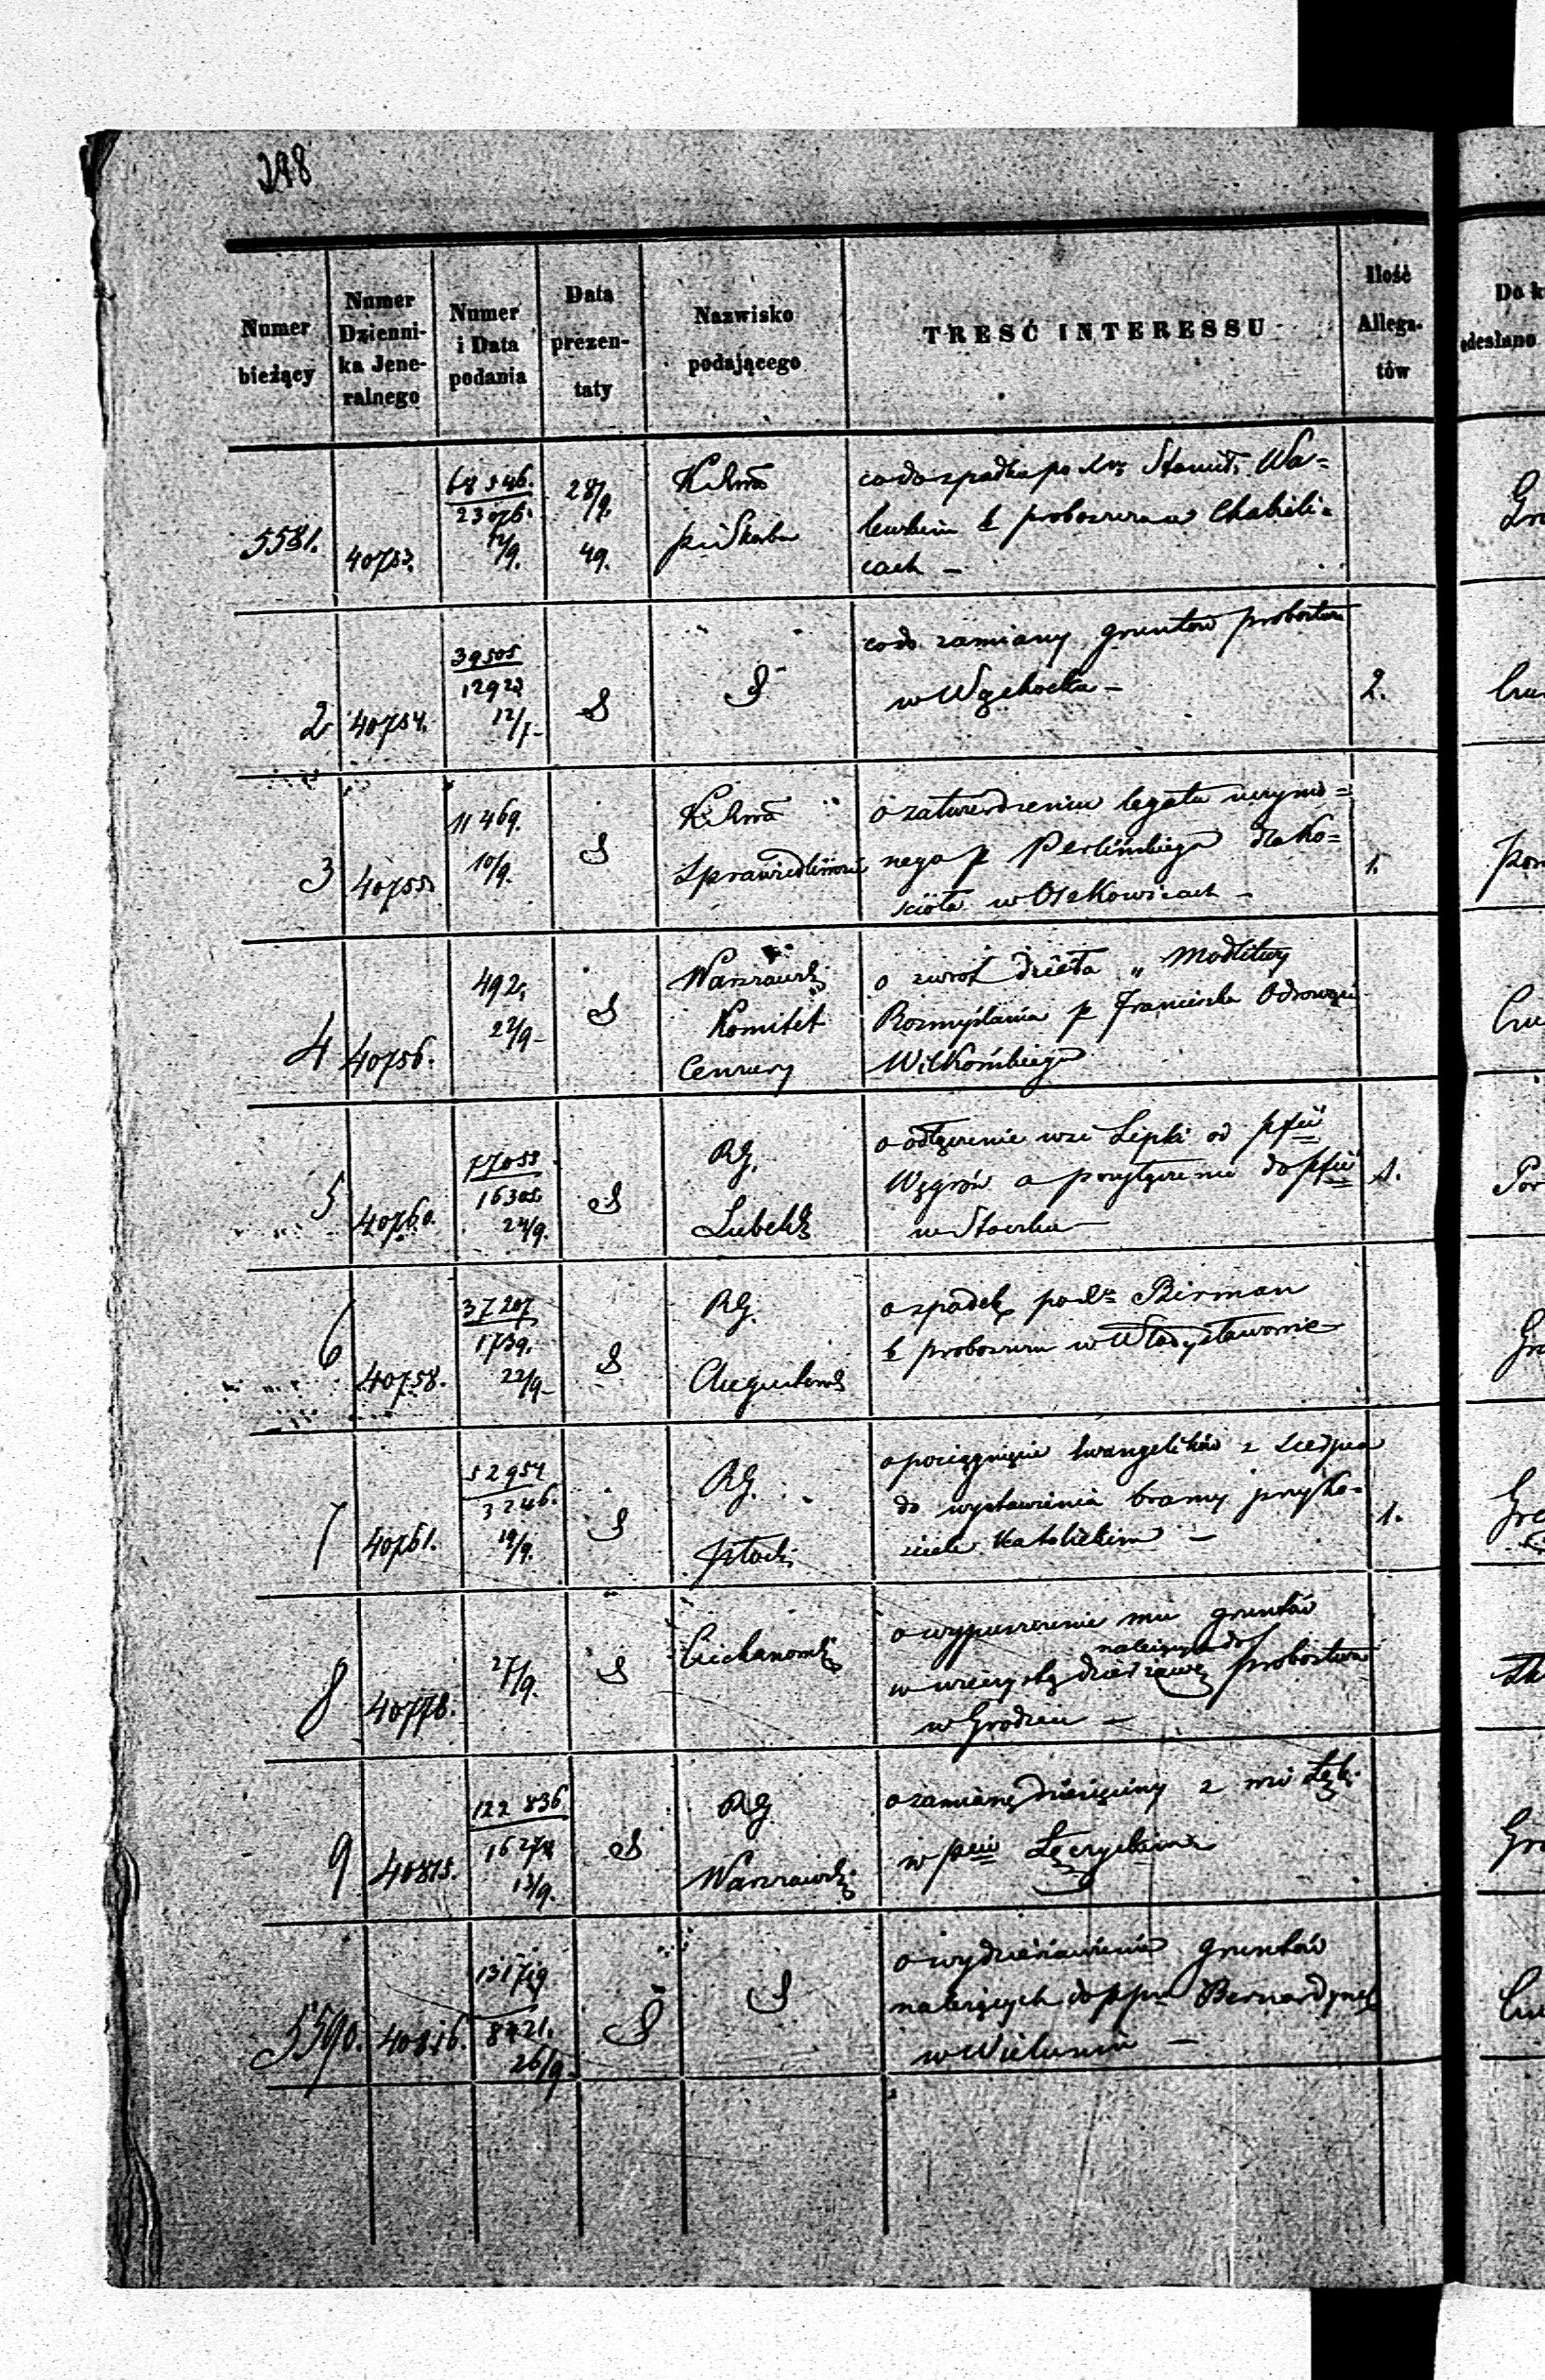 298
Numer bieżący
Numer Dzienni- ka Jene- ralnego
Numer i Data podania
Data prezen- taty
Nazwisko podającego
TRESĆ INTERESSU
Ilość Allega- tów
Do k
odesłano
5581.
40753.
23076.
12/9.
28/9.
49.
K Rząd
p i Skarbu
co do spadku po Xs Stanisł. Wa=
lewskim b proboszczu w Chabieli=
cach —
2
40754.
39505
12923
12/9-
S
S
co do zamiany gruntów probostwa
w Wąchocku —
2.
3
40755
11469.
10/9.
S
K Rząd
Sprawiedliwości
o zatwierdzenie legatu uczynio=
nego p Perlińskiego dla Ko=
ścioła w Osekowicach —
1.
4
40756.
492.
22/9-
S
Warszawski
Komitet
Cenzury
o zwrot dzieła „ Modlitwy
Rozmyślania p Franciszka Odrowąża
Wilkońskiego
5
40760.
77053
16305.
24/9.
S
RG.
Lubelski
o odłączenie wsi Lipki od pfii
Węgrów a przyłączenie do pfii
w Stoczku —
1.
6
40758.
37207
1739.
22/9-
S
RG.
Augustows
o spadek po Xs Birman
b proboszczu w Władysławowie
7
40761.
52954
3246.
19/9.
S
RG.
Płocki
o pociągnięcie Ewangelików z Sierpca
do wystawienia bramy przy Ko=
ściele Katolickim —
1.
8
40778.
27/9.
S
Ciechanowski
o wypuszczenie mu gruntów
należących do
w wieczystą dzierżawę probostwa
w Grodzcu —
9
40815.
122 836
13/9.
S
RG
Warszawski
o zamianę dziesięciny z wsi Łęki
w pcie Łęczyckim
5590.
40816.
13171g
8421.
26/9
S
S
o wydzierżawienie gruntów
należących do ppn Bernardynek
w Wieluniu —